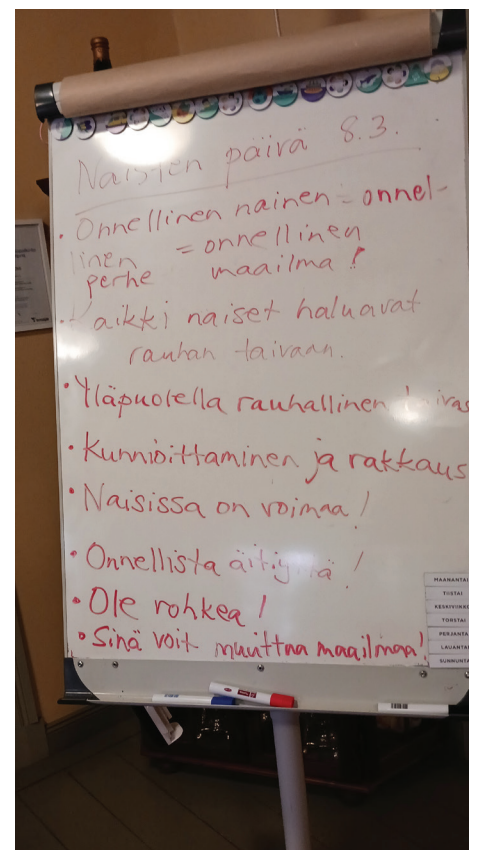 Naisten päivä 8.3.
• Onnellinen nainen = onnel-
linen = onnellinen
perhe maailma!
• Kaikki naiset haluavat
rauhan taivaan.
• Yläpuolella rauhallinen taivas
• Kunnioittaminen ja rakkaus
• Naisissa on voimaa!
• Onnellista äitiyttä!
• Ole rohkea!
• Sinä voit muuttaa maailmaa!
MAANANTAI
TIISTAI
KESKIVIIKKO
TORSTAI
PERJANTAI
LAUANTAI
SUNNUNTAI